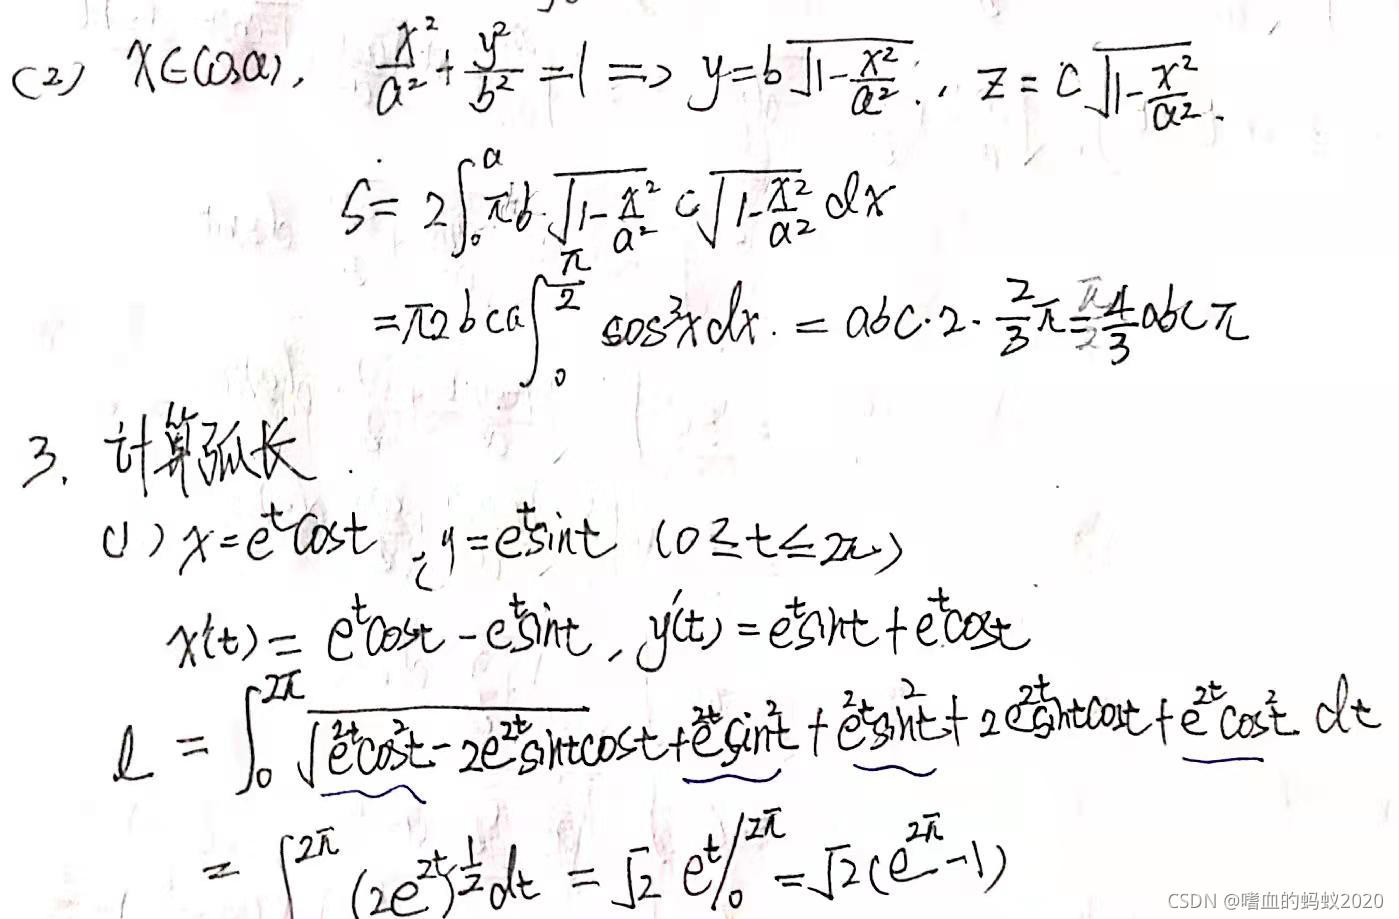 (2) x∈(0,a), x²/a² + y²/b² = 1 => y = b√(1-x²/a²), z = c√(1-x²/a²).
S = 2∫₀ᵃ πb√(1-x²/a²) c√(1-x²/a²) dx
= π2bca∫₀^(π/2) cos³x dx. = abc·2·2/3π = 4/3 abcπ
3. 计算弧长
(1) x = eᵗcost, y = eᵗsint (0≥t≤2π)
x'(t) = eᵗcost - eᵗsint, y'(t) = eᵗsint + eᵗcost
l = ∫₀^(2π) √(e²ᵗcos²t - 2e²ᵗsintcost + e²ᵗsin²t + e²ᵗsin²t + 2e²ᵗsintcost + e²ᵗcos²t) dt
= ∫^(2π) (2e²ᵗ)^(1/2) dt = √2 eᵗ|₀^(2π) = √2(e^(2π) - 1)
CSDN @嗜血的蚂蚁2020